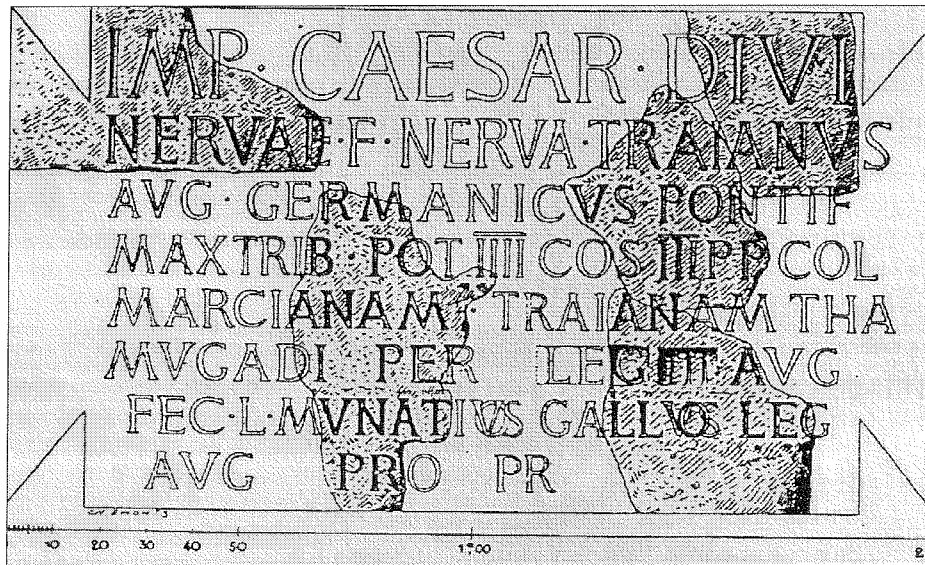 IMP · CAESAR · DIVI
NERVAE · F · NERVA · TRAIANVS
AVG · GERMANICVS PONTIF
MAX TRIB · POT IIII COS III P P COL
MARCIANAM · TRAIANAM THA
MVGADI PER LEG III AVG
FEC · L · MVNATIVS GALLVS LEG
AVG PRO PR
10 20 30 40 50 1.00 2